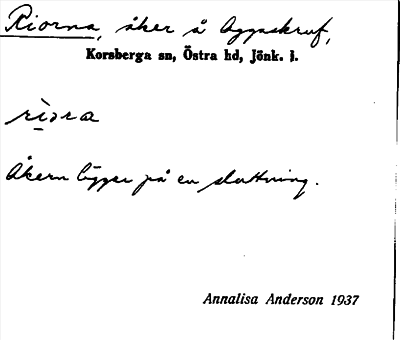 Riorna, åker å Aggaskruf,
Korsberga sn, Östra hd, Jönk. l.
rìora
Åkern ligger på en sluttning.
Annalisa Anderson 1937